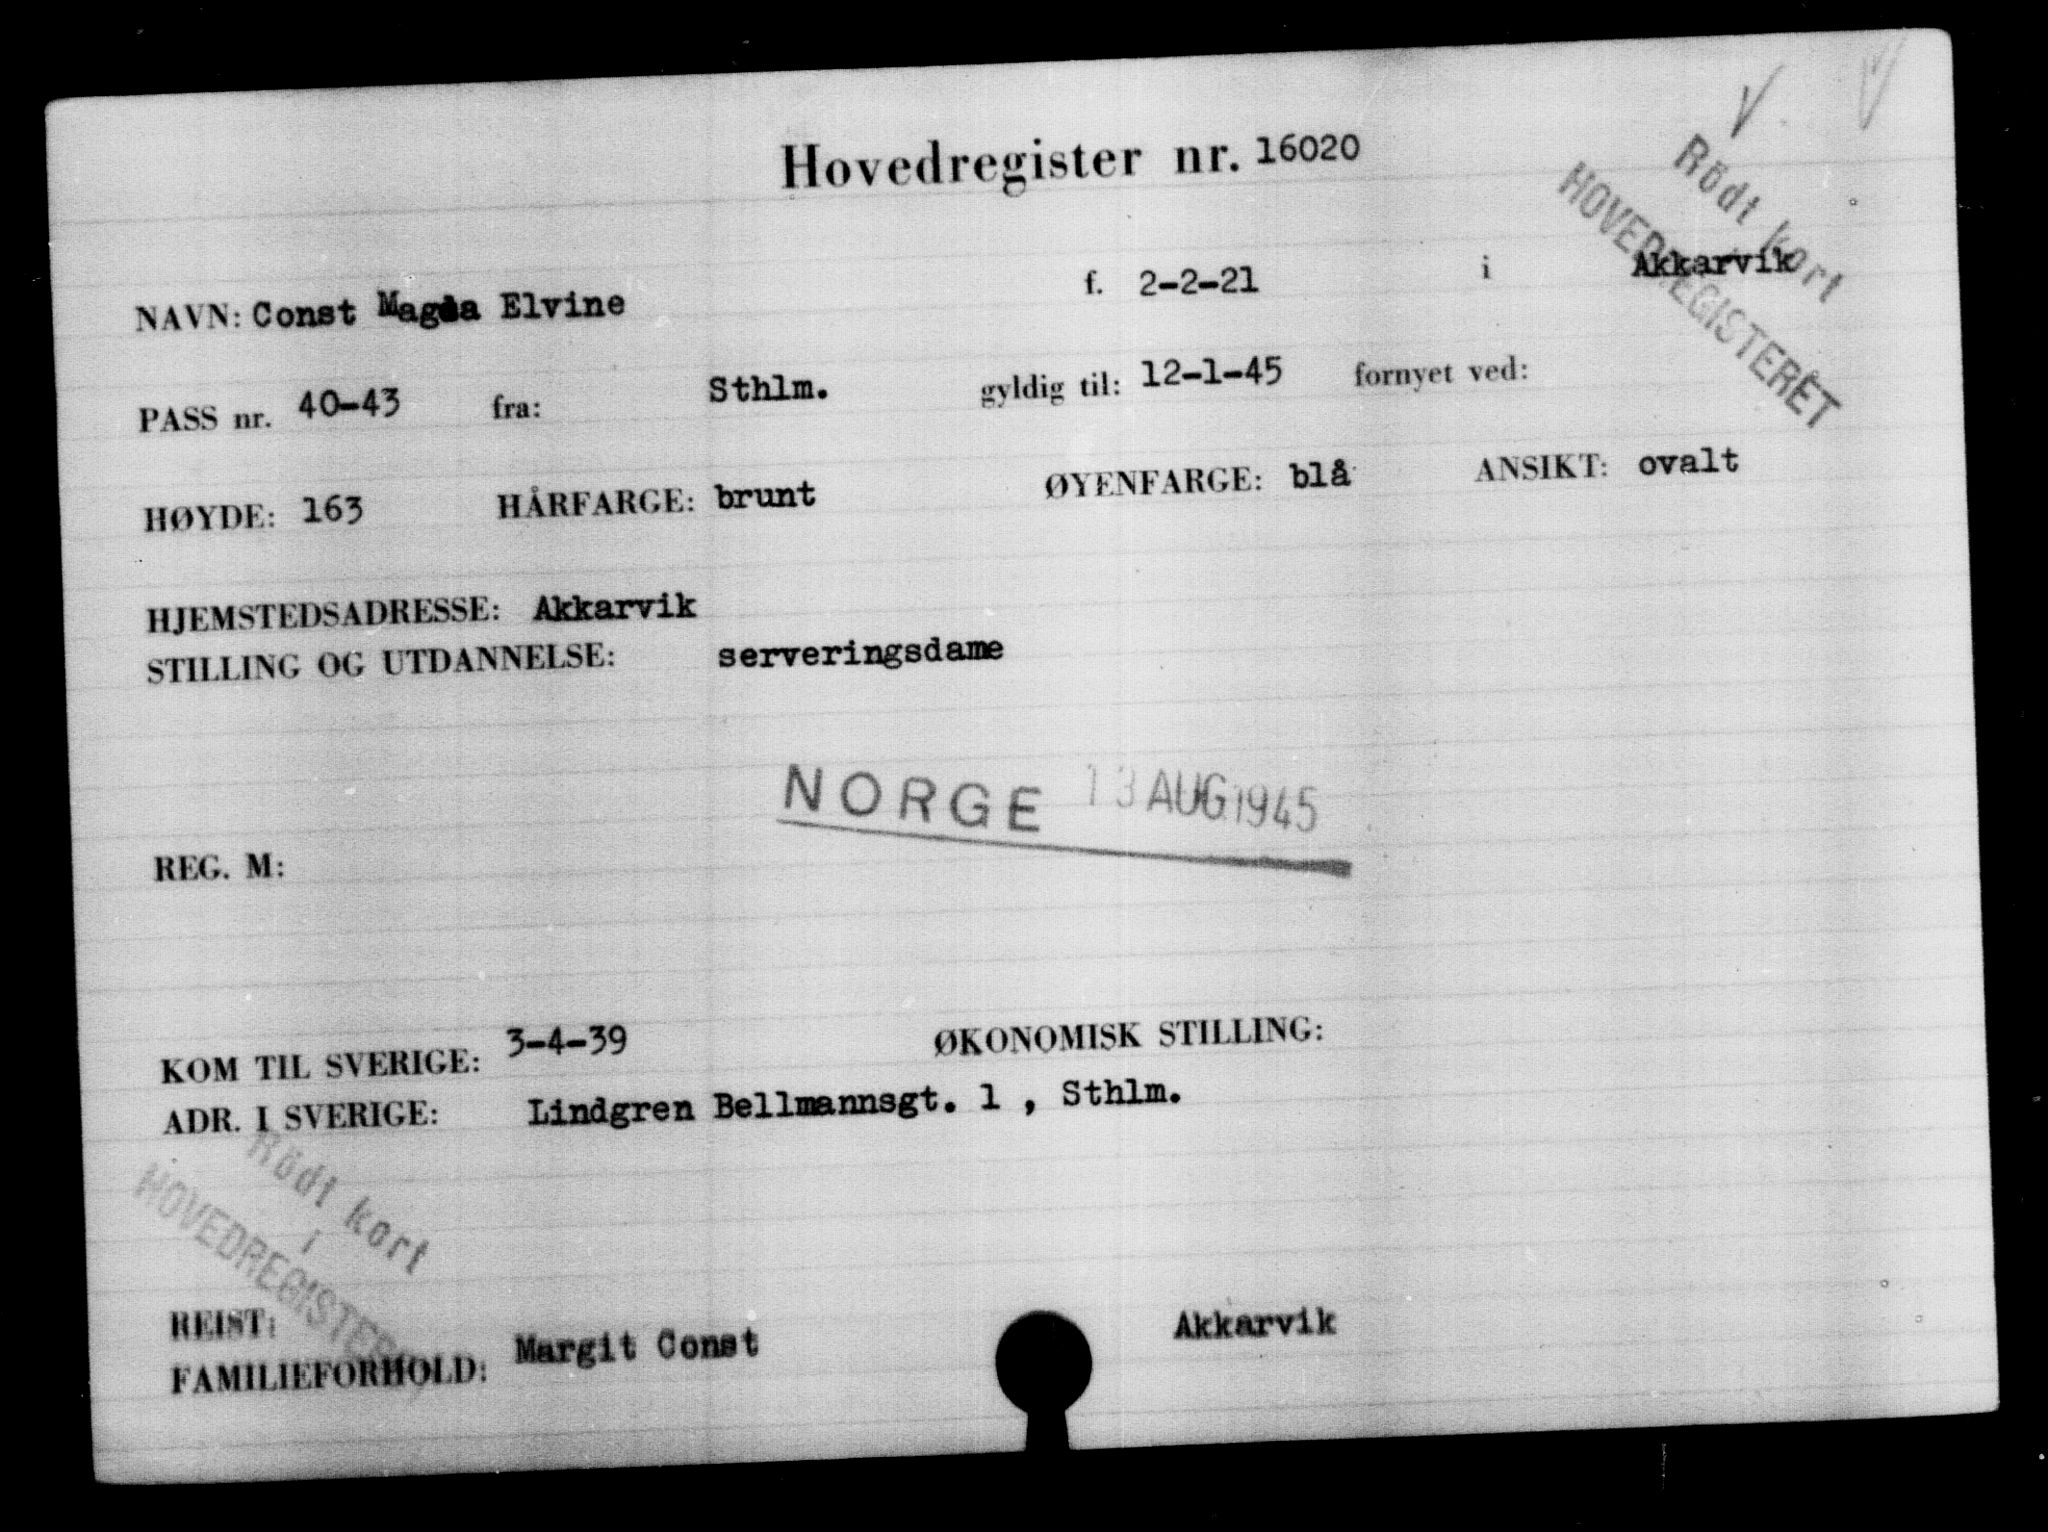 Hovedregister nr. 16020
Rödt kort
i
HOVEDREGISTERET
NAVN: Const Magda Elvine f. 2-2-21 i Akkarvik
PASS nr. 40-43 fra: Sthlm. gyldig til: 12-1-45 fornyet ved:
HØYDE: 163 HÅRFARGE: brunt ØYENFARGE: blå ANSIKT: ovalt
HJEMSTEDSADRESSE: Akkarvik
STILLING OG UTDANNELSE: serveringsdame
NORGE 13 AUG 1945
REG. M:
KOM TIL SVERIGE: 3-4-39 ØKONOMISK STILLING:
ADR. I SVERIGE: Lindgren Bellmannsgt. 1 , Sthlm.
Rödt kort
i
HOVEDREGISTERET
REIST:
FAMILIEFORHOLD: Margit Const Akkarvik